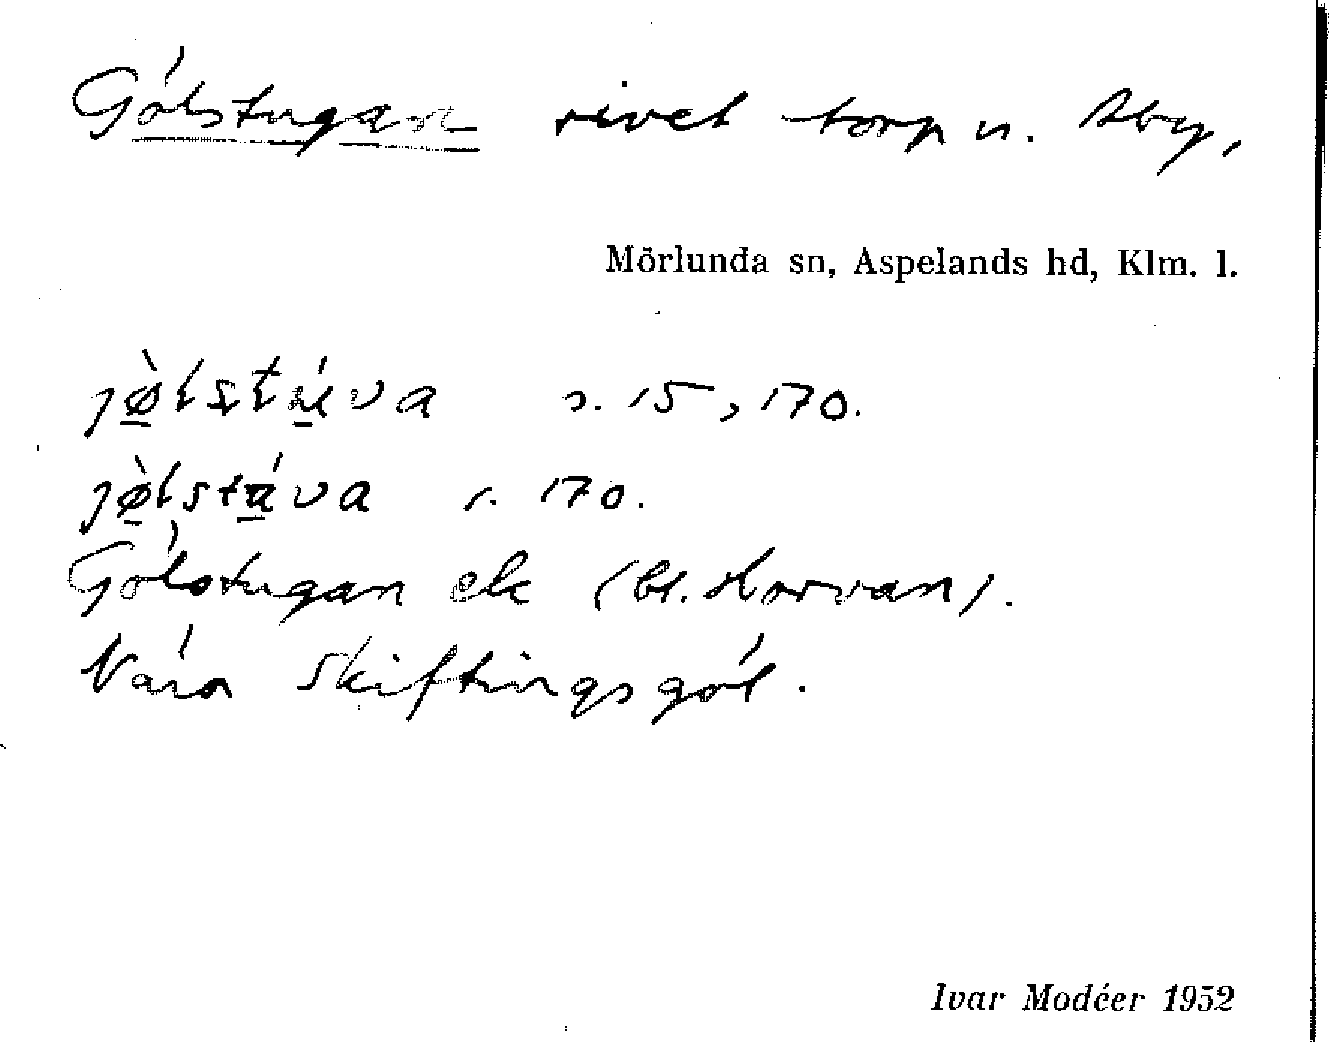 Gólstugan rivet torp u. Åby,
Mörlunda sn, Aspelands hd, Klm. l.
jø̀lstúva s. 15, 170.
jø̀lstúva s. 170.
Gólstugan ek (bl. Horvan).
Nära Skiftingsgól.
Ivar Modéer 1952